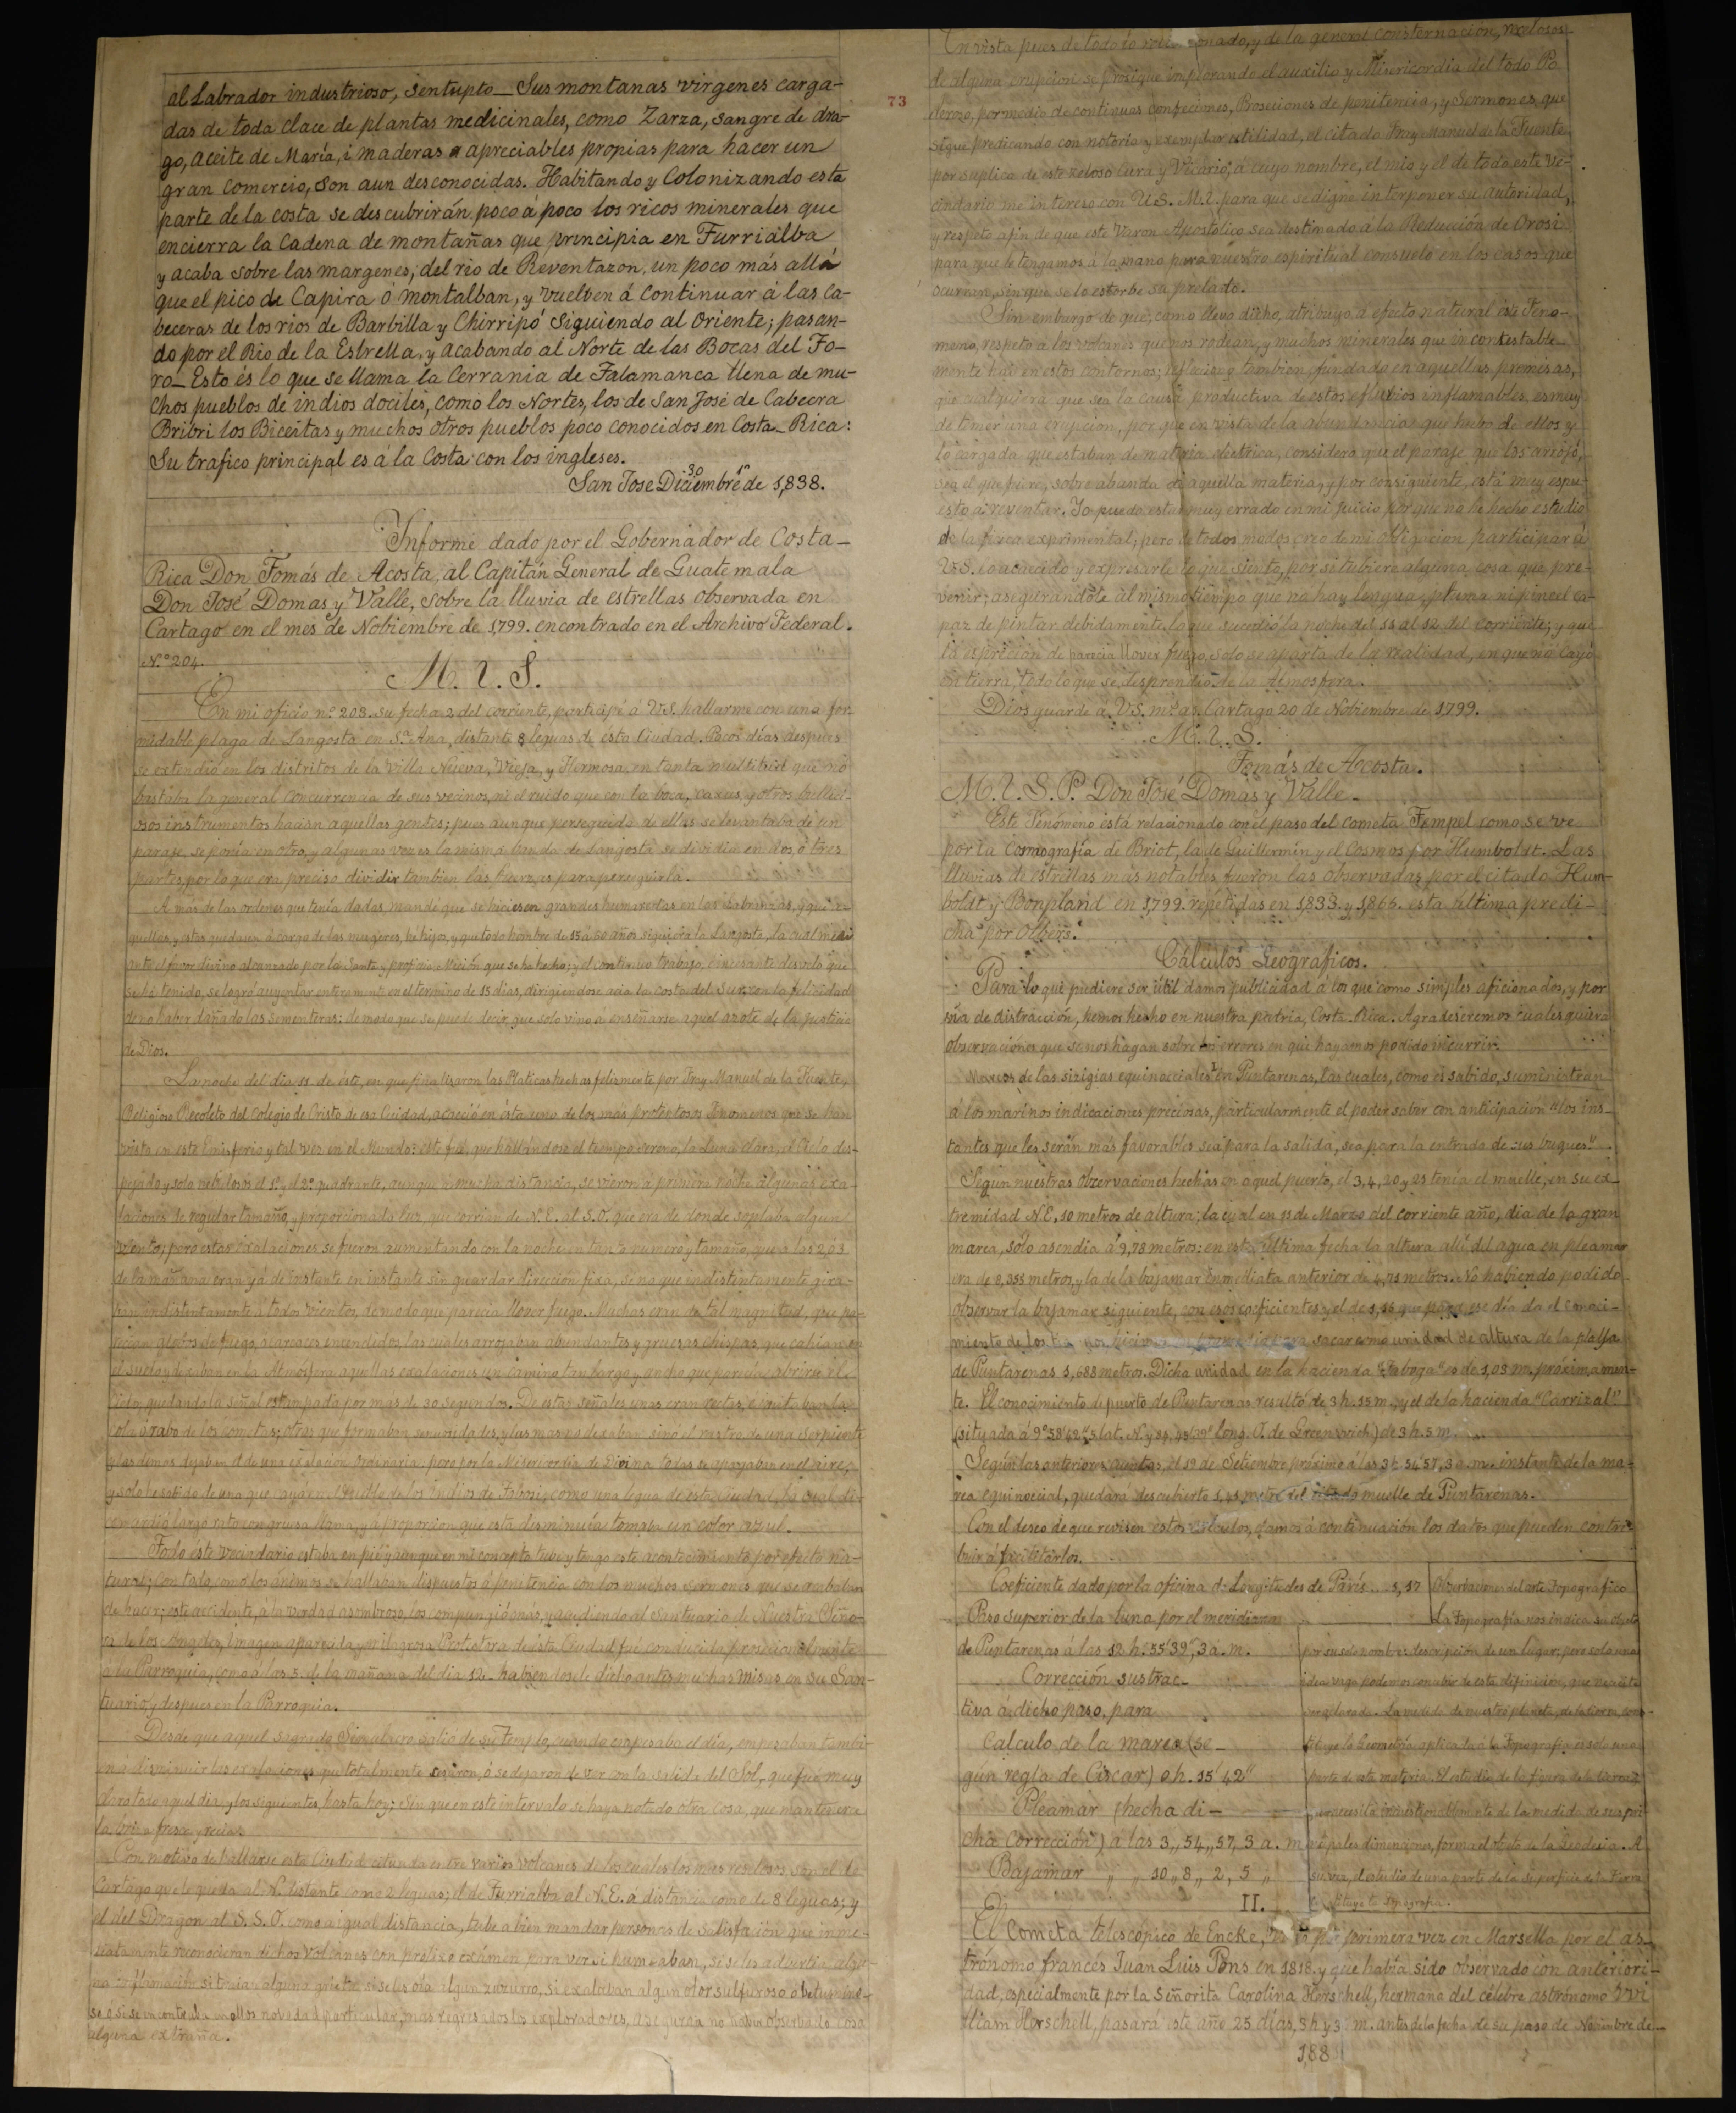 al Labrador industrioso, sentupto_ Sus montanas virgenes carga-
das de toda clace de plantas medicinales, como Zarza, sangre de dra-
go, aceite de María, i maderas apreciables propias para hacer un
gran comercio, son aun desconocidas. Habitando y Colonizando esta
parte de la costa se descubrirán poco á poco los ricos minerales que
encierra la Cadena de montañas que principia en Turrialba
y acaba sobre las margenes, del rio de Reventazon, un poco más allá
que el pico de Capira ó montalban, y vuelven á continuar á las ca-
beceras de los rios de Barbilla y Chirripó siguiendo al Oriente; pasan-
do por el Rio de la Estrella, y acabando al Norte de las Bocas del To-
ro_ Esto és lo que se llama la Cerrania de Talamanca llena de mu-
chos pueblos de indios dociles, como los Nortes, los de San José de Cabecra
Bribri los Biceitas y muchos otros pueblos poco conocidos en Costa_Rica:
Su trafico principal es á la Costa con los ingleses.
San Jose Diciembre 30 de 1,838.
Informe dado por el Gobernador de Costa_
Rica Don Tomás de Acosta, al Capitán General de Guatemala
Don José Domas y Valle, sobre la lluvia de estrellas observada en
Cartago en el mes de Nobiembre de 1,799. encontrado en el Archivo Federal.
N.º 204.
M. I. S.
En mi oficio nº 203. su fecha 3 del corriente, participé á V.S. hallarme con una for-
midable plaga de Langosta en Sª Ana, distante 8 leguas de esta Ciudad. Pocos días despues
se extendió en los distritos de la Villa Nueva, Vieja, y Hermosa, en tanta multitud que no
bastaba la general concurrencia de sus vecinos, ni el ruido que con la boca, caxas, y otros bullici-
osos instrumentos hacian aquellas gentes; pues aunque perseguida de ellas se levantaba de un
paraje, se ponía en otro, y algunas vezes la misma banda de langosta se dividia en dos ó tres
partes, por lo que era preciso dividir tambien las fuerzas para perseguirla.
A más de las ordenes que tenía dadas mandé que se hiciesen grandes humaredas en las labranzas, y que a-
quellas, y estas quedasen á cargo de las mugeres, he hijos, y que todo hombre de 15 á 50 años siguiera la Langosta, la cual medi
ante el favor divino alcanzado por la Santa y Mición que se ha hecho; y el continuo trabajo, é incesante desvelo que
se ha tenido, se logró auyentar enteramente en el termino de 15 dias, dirigiendose acia la costa del Sur, con la felicidad
de no haber dañado las sementeras: de modo que se puede decir, que solo vino a enseñarse aquel azote de la justicia
de Dios.
La noche del dia 11 de éste, en que finalizaron las Platicas hechas felizmente por Fray Manuel de la Fuente,
Religioso Recoleto del Colegio de Cristo de esa Ciudad, acaeció en ésta uno de los más protentosos Fenomenos que se han
visto en este Emisferio y tal vez en el Mundo: este fué, que hallandose el tiempo sereno, la Luna clara, el Cielo des-
pejado y solo nebulosos el 1º y el 2º quadrante, aunque á mucha distancia, se vieron á primera noche algunas exa-
laciones de regular tamaño, y proporcionada luz, que corrian de N.E. al S.O. que era de donde soplaba algun
viento; pero estas exalaciones se fueron aumentando con la noche en tanto numero y tamaño, que a las 2 ó 3
de la mañana eran yá de instante en instante sin guardar dirección fixa, sino que indistintamente gira-
ban indistintamente á todos vientos, de modo que parecia llover fuego. Muchas eran de tal magnitud, que pa-
recian globos de fuego, ó arcos encendidos, las cuales arrojaban abundantes y gruesas chispas, que cahian en
el suelo y dexaban en la Atmósfera aquellas exalaciones un camino tan largo y ancho que parecía abrirse el
Cielo, quedando la señal estampada por mas de 30 segundos. De estas señales unas eran rectas, é imitaban la
cola ó rabo de los cometas; otras que formaban senuosidades, y las mas no dexaban sino el rastro de una Serpiente
y las demas dejaban el de una exalación ordinaria; pero por la Misericordia de Divina todas se apagaban en el aire,
y solo he sabido de una que cayó en el Pueblo de los Indios de Tobosi, como una legua de esta ciudad, la cual di-
cen ardió largo rato con gruesa llama, y á proporcion que esta desminuía, tomaba un color azul.
Todo este vecindario estaba en pié, y aunque en mi concepto tube y tengo este acontecimiento por efecto na-
tural; con todo, como los ánimos se hallaban dispuestos á penitencia con los muchos sermones que se acababan
de hacer; este accidente, á la verdad asombroso, los compungió mas, y acudiendo al Santuario de Nuestra Seño-
ra de los Angeles, Imagen aparecida y milagrosa, Protectora de ésta Ciudad fué conducida procecionalmente
á la Parroquia, como á las 5 de la mañana del dia 12. habiendosele dicho antes muchas misas en su San-
tuario, y despues en la Parroquia.
Desde que aquel sagrado Simulacro salió de su Templo, cuando empesaba el día, empesaban tambi-
en á disminuir las exalaciones que totalmente cesaron, ó se dejaron de ver con la salida del Sol, que fué muy
claro todo aquel dia, y los siguientes, hasta hoy; sin que en este intervalo se haya notado otra cosa, que mantenerse
la brisa fresca y recia.
Con motivo de hallarse esta Ciudad situada entre varios volcanes de los cuales los mas recelosos, son el de
Cartago que le queda al N. distante como 2 leguas; el de Turrialba al N.E. á distancia como de 8 leguas; y
el del Dragon al S.S.O. como á igual distancia, tube a bien mandar personas de satisfación que inme-
diatamente reconocieran dichos volcanes con prolixo exámen para ver si humeaban, si se les advertia algu-
na inflamación si tenian alguna grieta, si se les oía algun zuzurro, si exalaban algun olor sulfuroso ó betumino-
so ó si se encontraba en ellos novedad particular, mas regresados los exploradores, aseguran no haber observado cosa
alguna extraña.
73
En vista pues de todo lo relacionado, y de la general consternación, recelosos
de alguna erupcion se prosigue implorando el auxilio y Misericordia del todo Po
deroso, por medio de continuas confeciones, Prosecciones de penitencia, y Sermones que
sigue predicando con notoria y exemplar utilidad, el citado Fray Manuel de la Fuente
por suplica de este zeloso Cura y Vicario, á cuyo nombre, el mio y el de todo este Ve-
cindario me intereso con U.S. M.I. para que se digne interponer su autoridad,
y respeto afin de que este Varon Apostólico sea destinado á la Reducción de Orosi
para que le tengamos á la mano para nuestro espiritual consuelo en los casos que
ocurran, sin que se lo estorbe su prelado.
Sin embargo de que, como llevo dicho, atribuyo á efecto natural este Feno-
meno, respeto a los volcanes que nos rodean, y muchos minerales que incontestable-
mente hai en estos contornos; reflexiono tambien fundado en aquellas premesas,
que cualquiera que sea la causa productiva de estos efluvios inflamables, es muy
de temer una erupcion, por que en vista de la abundancia que hubo de ellos y
lo cargada que estaban de materia electrica, considero que el paraje que los arrojó,
sea el que fuere, sobre abunda de aquella materia, y por consiguiente, está muy espu-
esto a reventar. Yo puedo estar muy errado en mi juicio por que no he hecho estudio
de la fisica exprimental; pero de todos modos creo de mi obligacion participar á
V.S. lo acaecido y expresarle lo que siento, por si tubiere alguna cosa que pre-
venir; asegurandole al mismo tiempo que no hay lengua, pluma ni pincel ca-
paz de pintar debidamente lo que sucedió la noche del 11 al 12 del corriente; y que
la espreción de parecia llover fuego, solo se aparta de la realidad, en que no cayó
en tierra, todo lo que se desprendió de la Atmosfera.
Dios guarde á V.S. mˢ aˢ. Cartago 20 de Nobiembre de 1,799.
M. I. S.
Tomás de Acosta.
M. I. S. P. Don José Domas y Valle.
Este Fenómeno está relacionado con el paso del cometa Tempel como se ve
por la Cosmografía de Briot, la de Guillermín y el Cosmos por Humboldt. Las
lluvias de estrellas más notables, fueron las observadas por el citado Hum-
boldt y Bonpland en 1,799. repetidas en 1,833. y 1,866. esta última predi-
cha por Olbers.
Cálculos Geograficos.
Para lo que pudiere ser útil damos publicidad á los que como simples aficionados, y por
vía de distracción, hemos hecho en nuestra patria, Costa-Rica. Agradeséremos cualesquiera
observaciónes que se nos hagan sobre los errores en que hayamos podido incurrir.
I
Mareas de las sizigias equinocciales En Puntarenas, las cuales, como és sabido, suministran
á los marinos indicaciones preciosas, particularmente el poder saber con anticipacion "los ins-
tantes que les serán mas favorables sea para la salida, sea para la entrada de sus buques".
Según nuestras observaciones hechas en aquel puerto, el 3, 4, 20 y 21 tenía el muelle, en su ex-
tremidad N.E. 10 metros de altura; la cual en 11 de Marzo del corriente año, dia de la gran
marea, sólo asendia á 9,78 metros: en esta última fecha la altura allí del agua en pleamar
era de 8,355 metros, y la de la bajamar inmediata anterior de 4,71 metros. No habiendo podido
observar la bajamar siguiente, con esos coeficientes y el de 1,16 que para ese día da el conoci-
miento de los sacar como unidad de altura de la playa
de Puntarenas 1,688 metros. Dicha unidad en la hacienda "Taboga" es de 1,03 m. próximamen-
te. El conocimiento de puerto de Puntarenas resultó de 3 h. 15 m. y el de la hacienda "Carrizal"
(situada á 9º 58' 42" 5 lat. N. y 84, 45' 39" long. O. de Greenwich) de 3 h. 5 m.
Según los anteriores cuentas, el 19 de Setiembre próximo á las 3 h. 54' 57", 3 a. m. instante de la ma-
rea equinocial, quedará descubierto 1,45 metro del citado muelle de Puntarenas.
Con el deseo de que revisen estos calculos, damos á continuación los datos que pueden contri-
buir á facilitarlos.
Coeficiente dado por la oficina de Longitudes de París... 1, 17
Paso superior de la luna por el meridiano
de Puntarenas á las 12. h. 55' 39", 3 a. m.
Corrección sustrac-
tiva á dicho paso, para
Calculo de la marea (se-
gún regla de Ciscar) 0 h. 15' 42"
Pleamar (hecha di-
cha Corrección) á las 3,, 54,, 57, 3 a. m.
Bajamar ,, ,, 10,, 8,, 2, 5 ,,
Observaciones del arte Topográfico
La Topografía nos indica su objeto
por su solo nombre: descripción de un lugar; pero solo una
idea vaga podemos concebir de esta difinición, que necesita
ser aclarada. La medida de nuestro planeta, de la tierra, cons-
tituye la Geometría, aplicada á la Topografía és solo una
parte de esta materia. El estudio de la figura de la tierra,
y necesita incuestionablemente de la medida de sus pri
ncipales dimenciones, forma el objeto de la Geodesia. A
su vez, el estudio de una parte de la superficie de la Tierra
constituye la Topografía.
II.
El Cometa telescópico de Encke, visto por primera vez en Marsella por el as-
trónomo francés Juan Luis Pons en 1818. y que había sido observado con anteriori-
dad, especialmente por la Señorita Carolina Herschell, hermana del célebre astrónomo Wi
lliam Herschell, pasará este año 25 días, 3 h y 3 m. antes de la fecha de su paso de Noviembre de
188